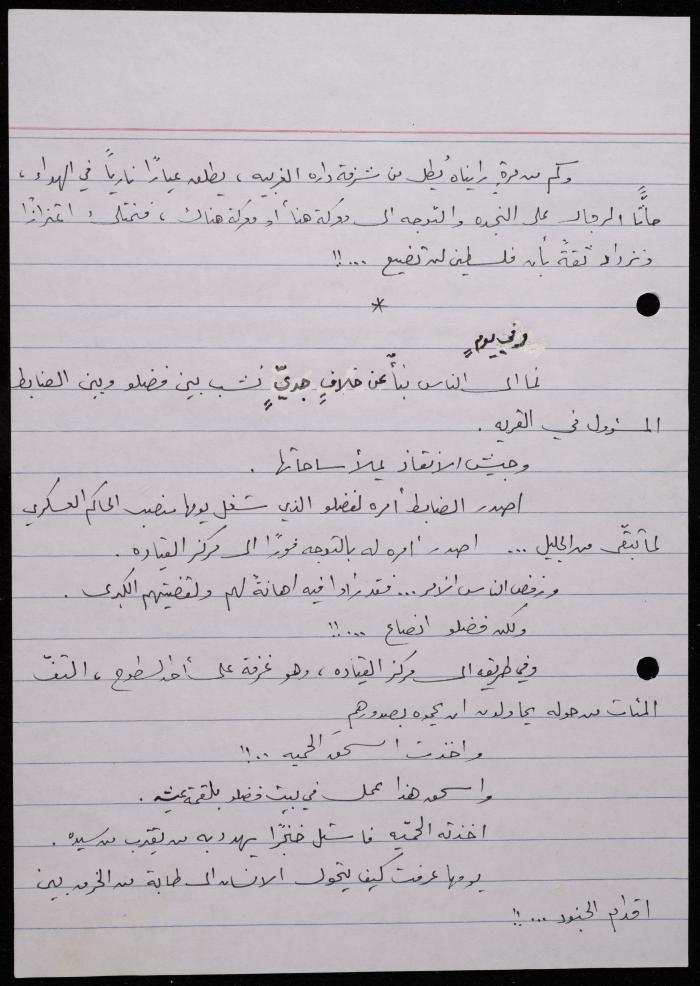 وكم من مرةٍ رايناه يُطل من شرفة داره الغربيه ، يطلق عيارًا ناريًا في الهواء ،
حاثًّا الرجال على النجده والتوجه الى معركة هنا أو معركة هناك ، فنمتلىء اعتزازًا
ونزداد ثقةً بأن فلسطين لن تضيع ...!!
*
وفي يومٍ
نما الى الناس نبأٌ عن خلافٍ جديٍّ نشب بين فضلو وبين الضابط
المسؤول في القريه .
وجيش الانقاذ يملأ ساحاتها .
اصدر الضابط أمره لفضلو الذي شغل يومها منصب الحاكم العسكري
لما تبقّى من الجليل ... اصدر أمره له بالتوجه فورًا الى مركز القياده .
ورفض الناس الأمر... فقد رأوا فيه اهانةً لهم ولقضيتهم الكبرى .
ولكن فضلو انصاع ...!!
وفي طريقه الى مركز القياده ، وهو غرفة على أحد السطوح ، التفّ
المئات من حوله يحاولون ان يحموه بصدورهم
واخذت اسحقَ الحميه ..!!
واسحق هذا عمل في بيت فضلو بلقمة عيشه .
اخذته الحميّه فاستل خنجرًا يهدد به من يقترب من سيده .
يومها عرفت كيف يتحول الانسان الى طابة من الخرق بين
اقدام الجنود ...!!